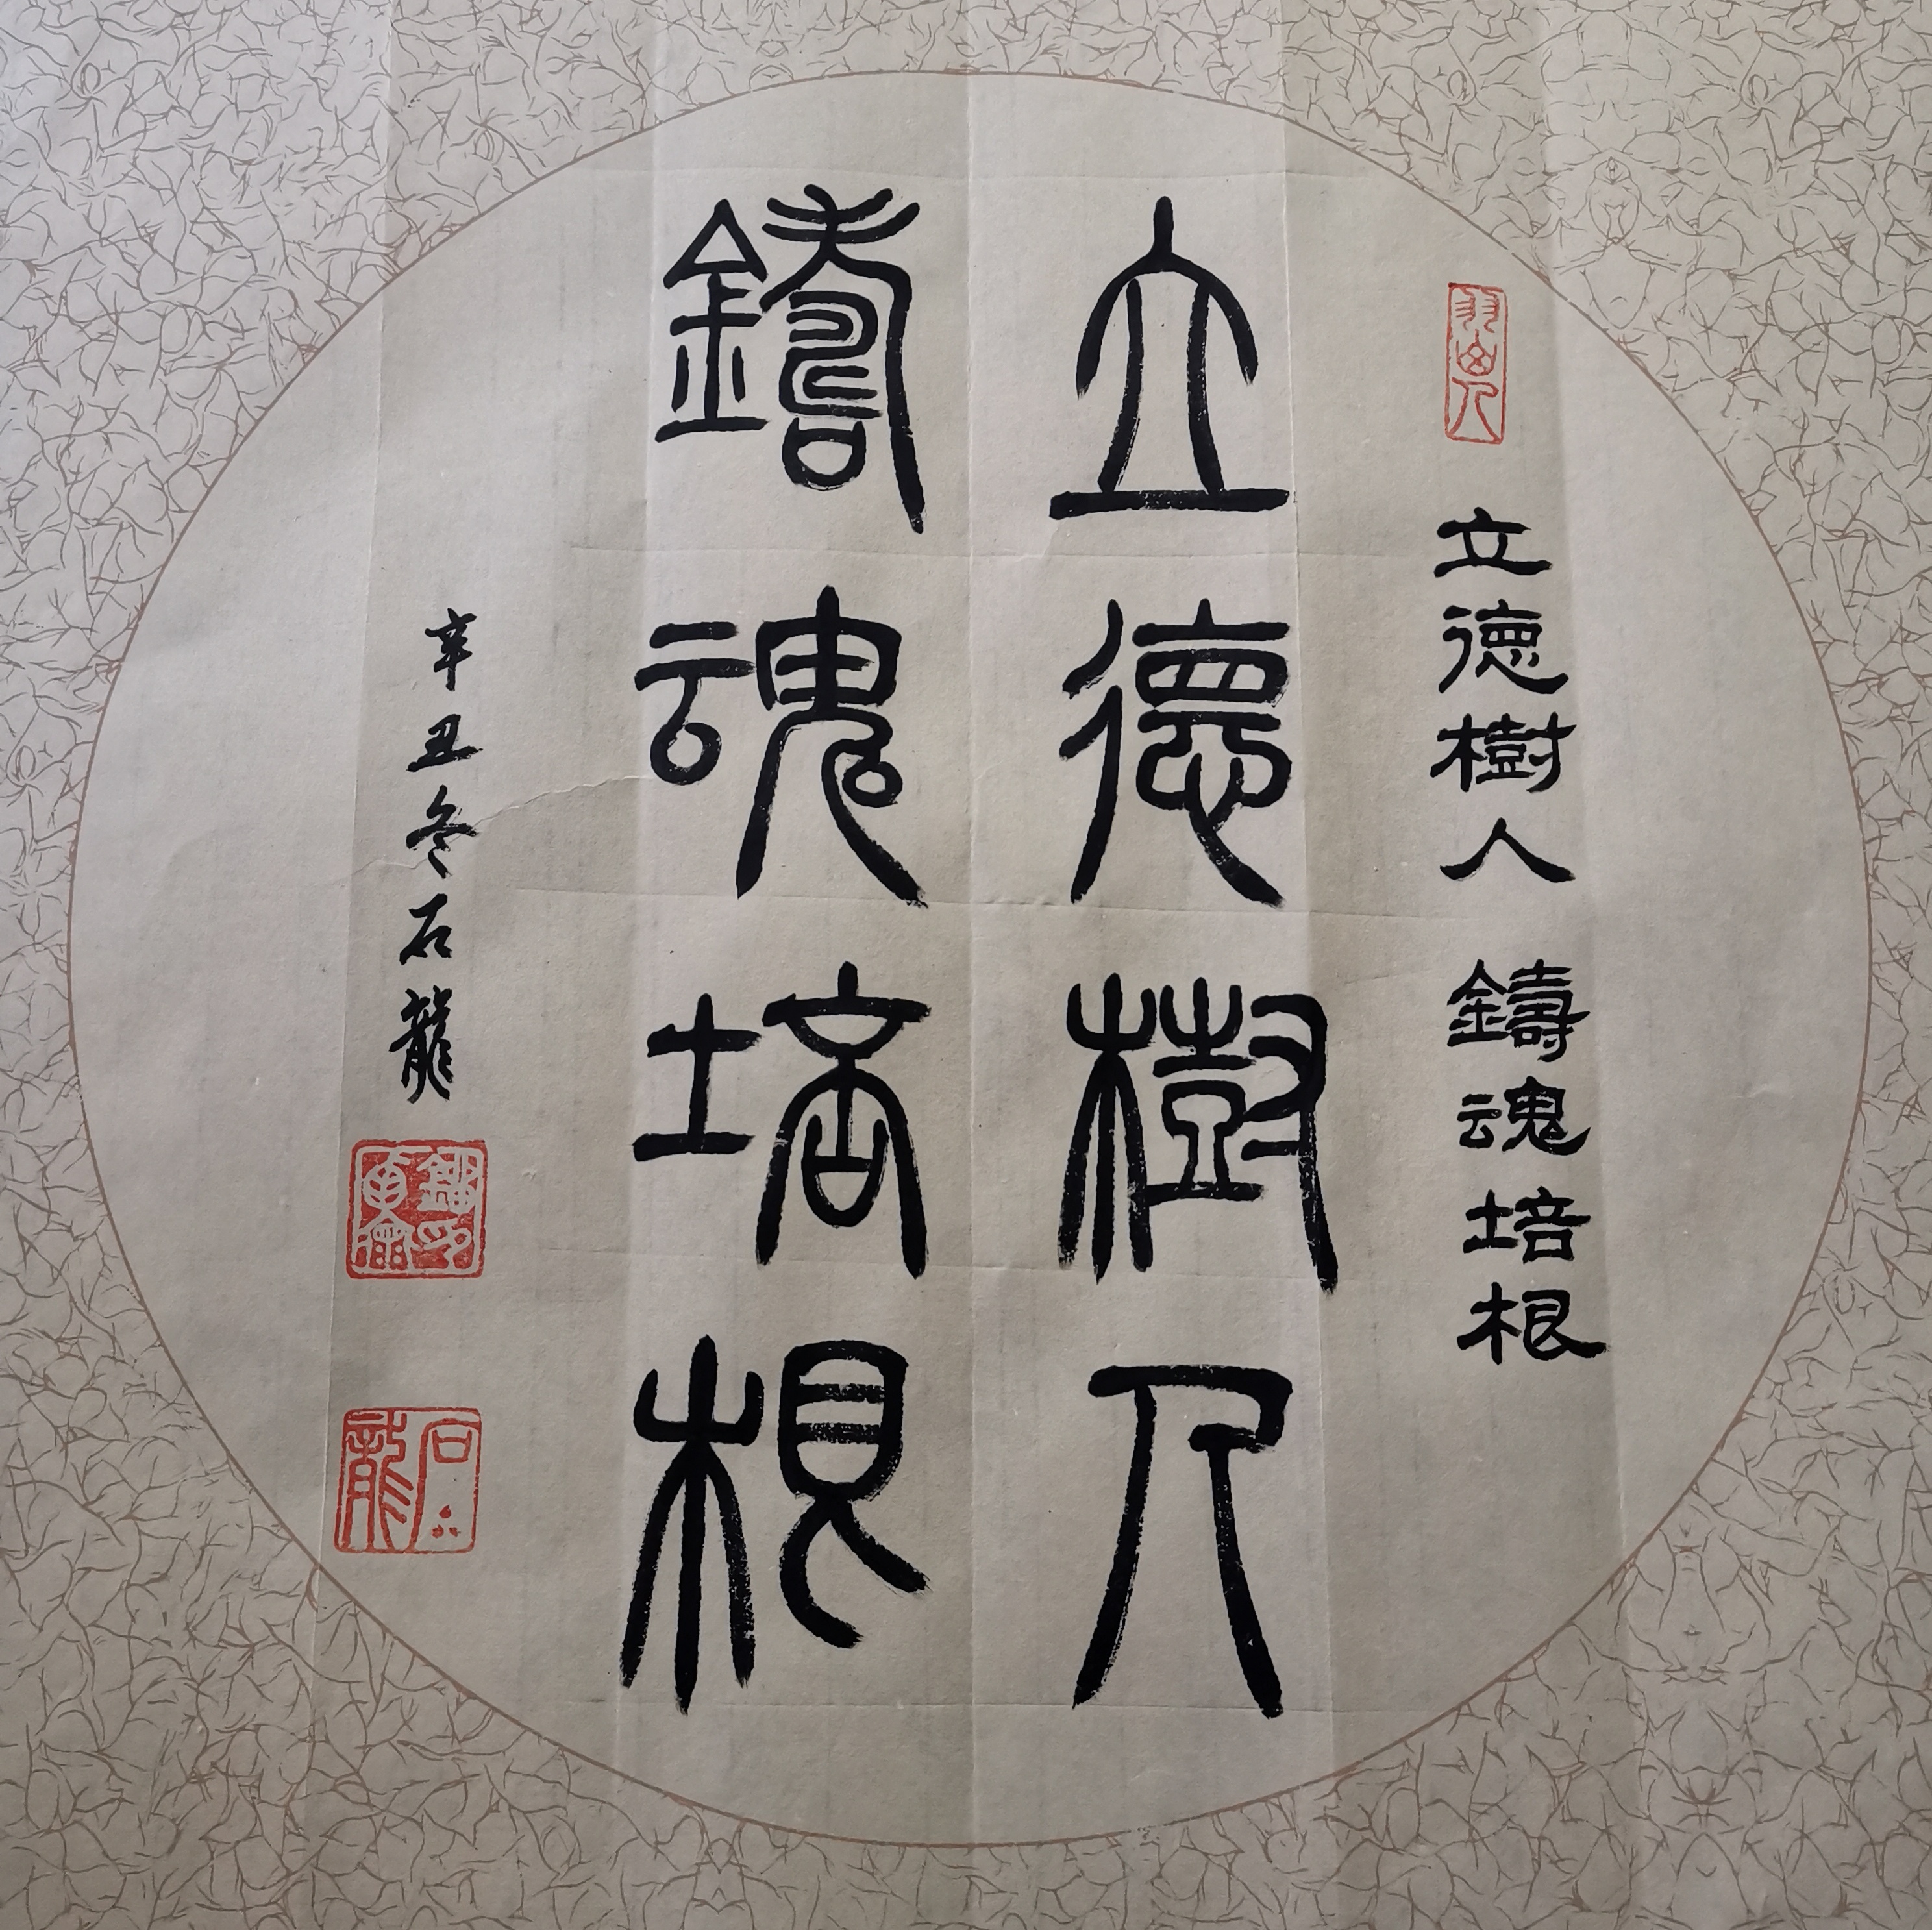 立德樹人 鑄魂培根
立德樹人
鑄魂培根
辛丑冬石龍
石龍